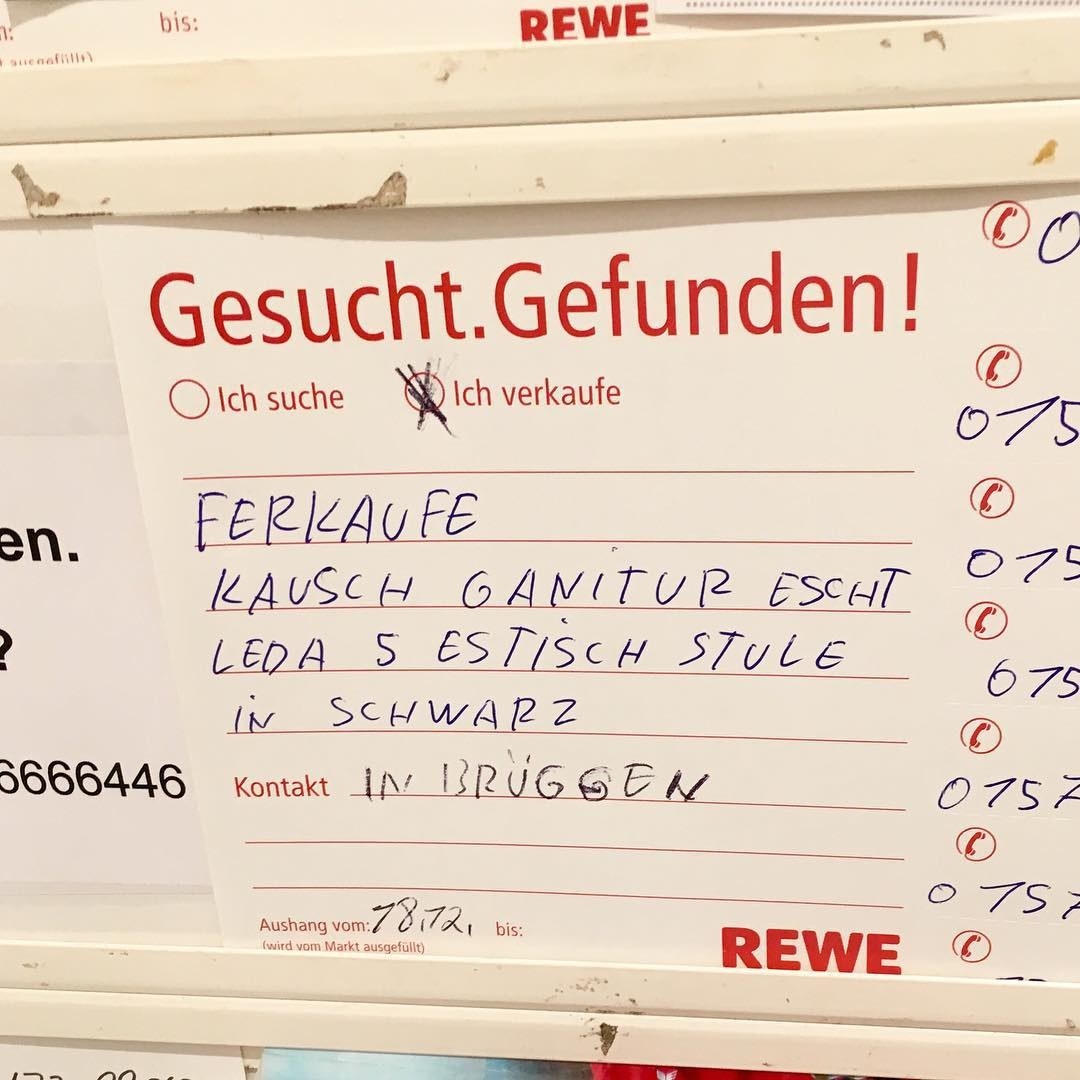 bis:
REWE
Gesucht.Gefunden!
Ich suche Ich verkaufe
FERKAUFE
KAUSCH GANITUR ESCHT
LEDA 5 ESTISCH STULE
IN SCHWARZ
Kontakt IN BRÜGGEN
Aushang vom: 18.12. bis:
(wird vom Markt ausgefüllt)
REWE
en.
?
6666446
0
015
015
015
0157
0157